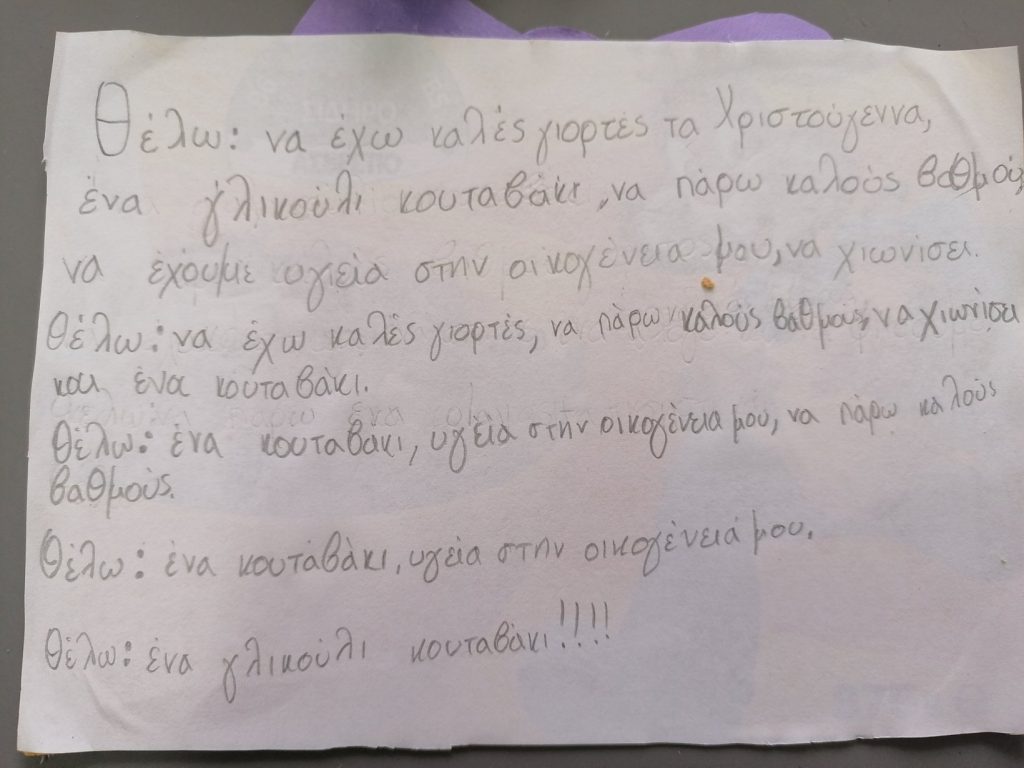 Θέλω: να έχω καλές γιορτές τα Χριστούγεννα,
ένα γλικούλι κουταβάκι, να πάρω καλούς βαθμούς,
να έχουμε υγεία στην οικογένεια μου, να χιωνίσει.
Θέλω: να έχω καλές γιορτές, να πάρω καλούς βαθμούς, να χιωνίσει
και ένα κουταβάκι.
Θέλω: ένα κουταβακι, υγεία στην οικογένεια μου, να πάρω καλούς
βαθμούς.
Θέλω: ένα κουταβάκι, υγεία στην οικογένειά μου.
Θέλω: ένα γλικούλι κουταβάκι!!!!